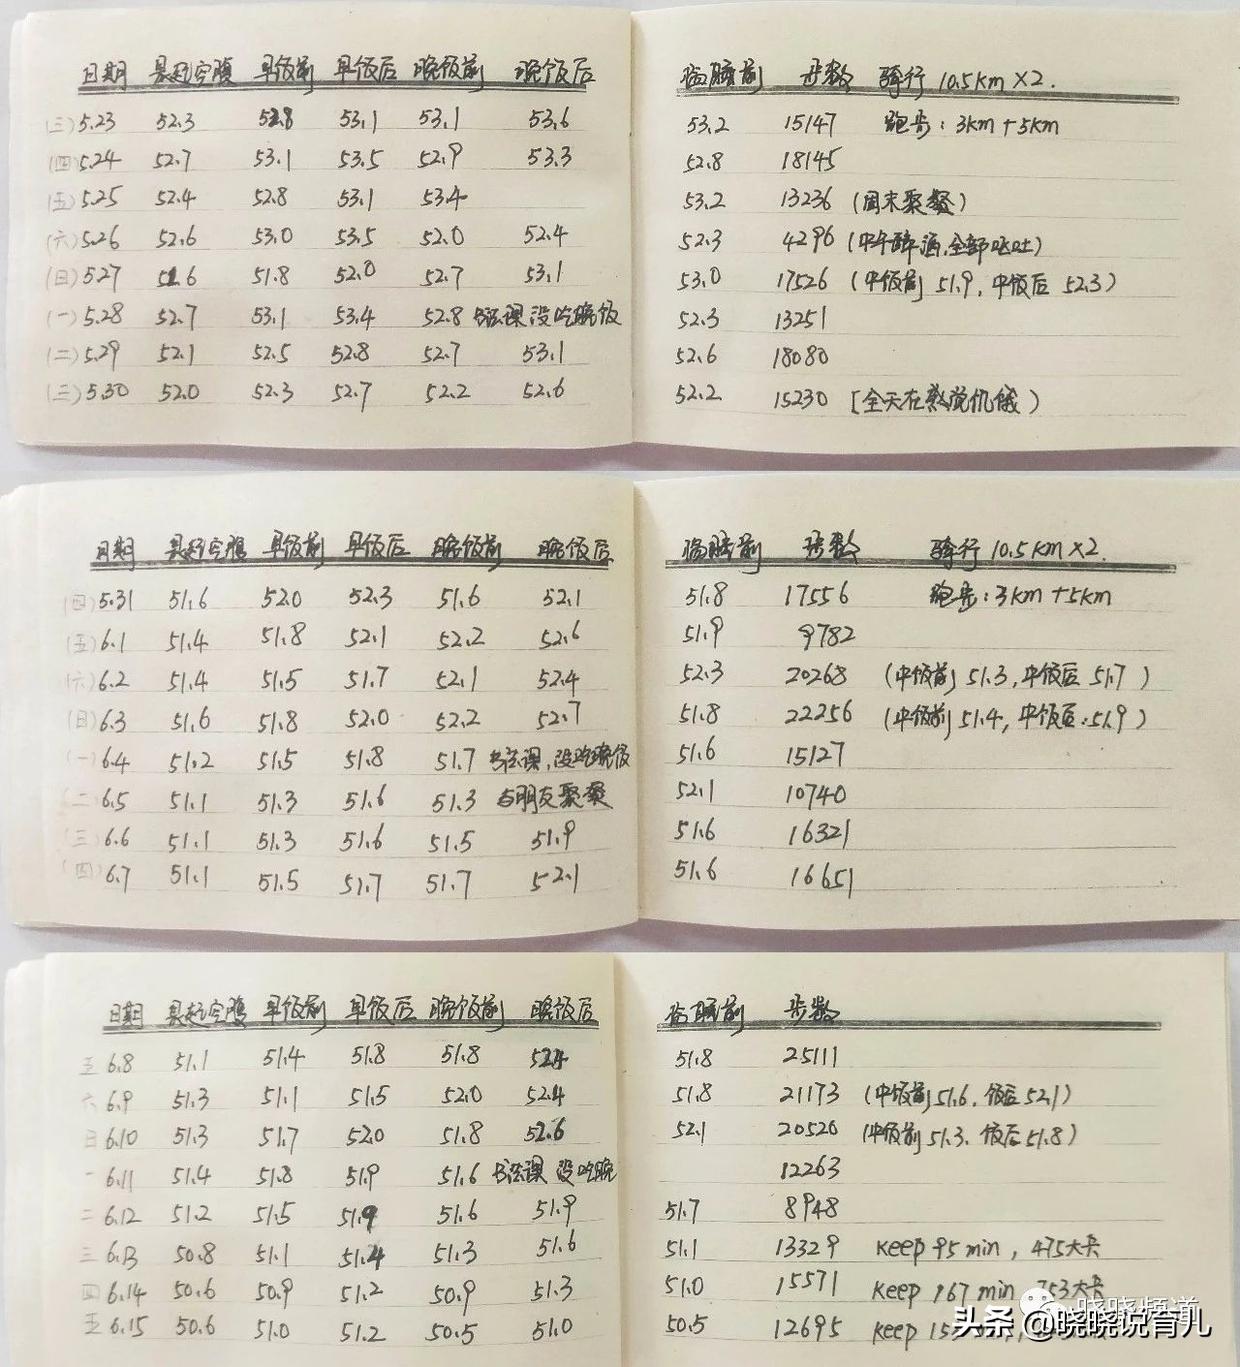 日期 晨起空腹 早饭前 早饭后 晚饭前 晚饭后 临睡前 步数 骑行 10.5km×2.
(三) 5.23 52.3 52.8 53.1 53.1 53.6 53.2 15147 跑步:3km+5km
(四) 5.24 52.7 53.1 53.5 52.9 53.3 52.8 18145
(五) 5.25 52.4 52.8 53.1 53.4 53.2 13236 (周末聚餐)
(六) 5.26 52.6 53.0 53.5 52.0 52.4 52.3 4296 (中午醉酒,全部呕吐)
(日) 5.27 51.6 51.8 52.0 52.7 53.1 53.0 17526 (中饭前 51.9, 中饭后 52.3)
(一) 5.28 52.7 53.1 53.4 52.8 书法课 没吃晚饭 52.3 13251
(二) 5.29 52.1 52.5 52.8 52.7 53.1 52.6 18080
(三) 5.30 52.0 52.3 52.7 52.2 52.6 52.2 15230 [全天在感觉饥饿)
日期 晨起空腹 早饭前 早饭后 晚饭前 晚饭后 临睡前 步数 骑行 10.5km×2.
(四) 5.31 51.6 52.0 52.3 51.6 52.1 51.8 17556 跑步:3km+5km
(五) 6.1 51.4 51.8 52.1 52.2 52.6 51.9 9782
(六) 6.2 51.4 51.5 51.7 52.1 52.4 52.3 20268 (中饭前 51.3,中饭后 51.7)
(日) 6.3 51.6 51.8 52.0 52.2 52.7 51.8 22256 (中饭前 51.4, 中饭后:51.9)
(一) 6.4 51.2 51.5 51.8 51.7 书法课,没吃晚饭 51.6 15127
(二) 6.5 51.1 51.3 51.6 51.3 与朋友聚餐 52.1 10740
(三) 6.6 51.1 51.3 51.6 51.5 51.9 51.6 16321
(四) 6.7 51.1 51.5 51.7 51.7 52.1 51.6 16651
日期 晨起空腹 早饭前 早饭后 晚饭前 晚饭后 临睡前 步数
五 6.8 51.1 51.4 51.8 51.8 52.4 51.8 25111
六 6.9 51.3 51.1 51.5 52.0 52.4 51.8 21173 (中饭前 51.6, 饭后 52.1)
日 6.10 51.3 51.7 52.0 51.8 52.6 52.1 20520 (中饭前 51.3. 饭后 51.8)
一 6.11 51.4 51.8 51.9 51.6 书法课 没吃晚 12263
二 6.12 51.2 51.5 51.9 51.6 51.9 51.7 8948
三 6.13 50.8 51.1 51.4 51.3 51.6 51.1 13329 keep 95 min, 475大卡
四 6.14 50.6 50.9 51.2 50.9 51.3 51.0 15571 keep 167 min 753大卡
五 6.15 50.6 51.0 51.2 50.5 51.0 50.5 12695 keep
晓晓频道
头条 @晓晓说育儿